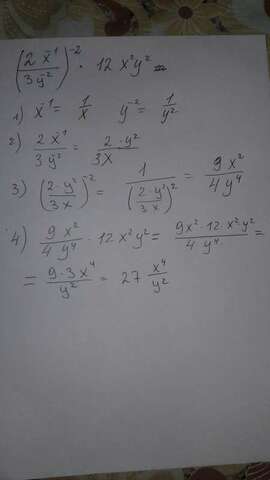 (2x⁻¹/3y⁻²)⁻² · 12x²y² =
1) x⁻¹ = 1/x y⁻² = 1/y²
2) 2x⁻¹/3y⁻² = 2·y²/3x
3) (2·y²/3x)⁻² = 1/(2·y²/3x)² = 9x²/4y⁴
4) 9x²/4y⁴ · 12x²y² = 9x²·12·x²y²/4·y⁴ =
= 9·3x⁴/y² = 27 x⁴/y²